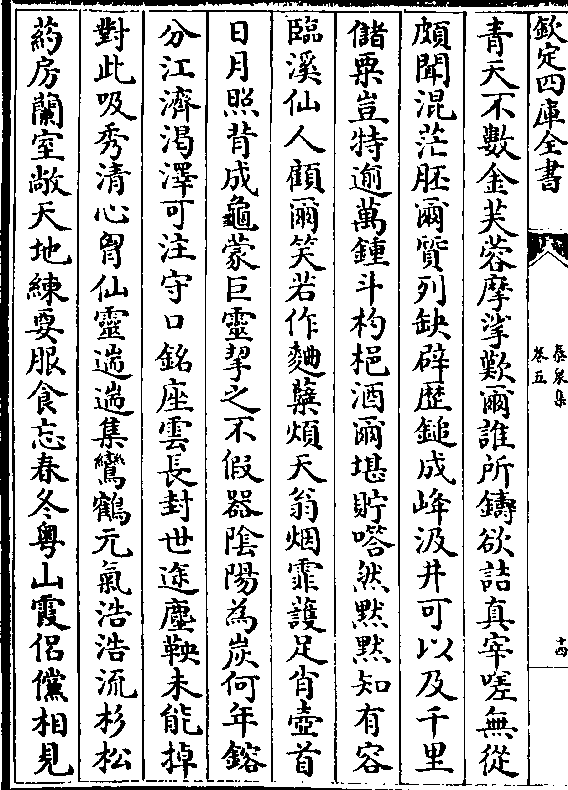 欽定四庫全書
泰泉集
卷五
十四
青天不數金芙蓉摩挲歎爾誰所鑄欲詰真宰嗟無從
頗聞混茫胚爾質列缺辟歷鎚成峰汲井可以及千里
儲粟豈特逾萬鍾斗杓挹酒爾堪貯嗒然黙黙知有容
臨溪仙人顧爾笑若作麯糵煩天翁烟霏護足肖壺首
日月照背成龜蒙巨靈挈之不假器陰陽為炭何年鎔
分江濟渴澤可注守口銘座雲長封世途塵鞅未能掉
對此吸秀清心胷仙靈遄遄集鸞鶴元氣浩浩流杉松
葯房蘭室敞天地練要服食忘春冬粤山霞侣儻相見